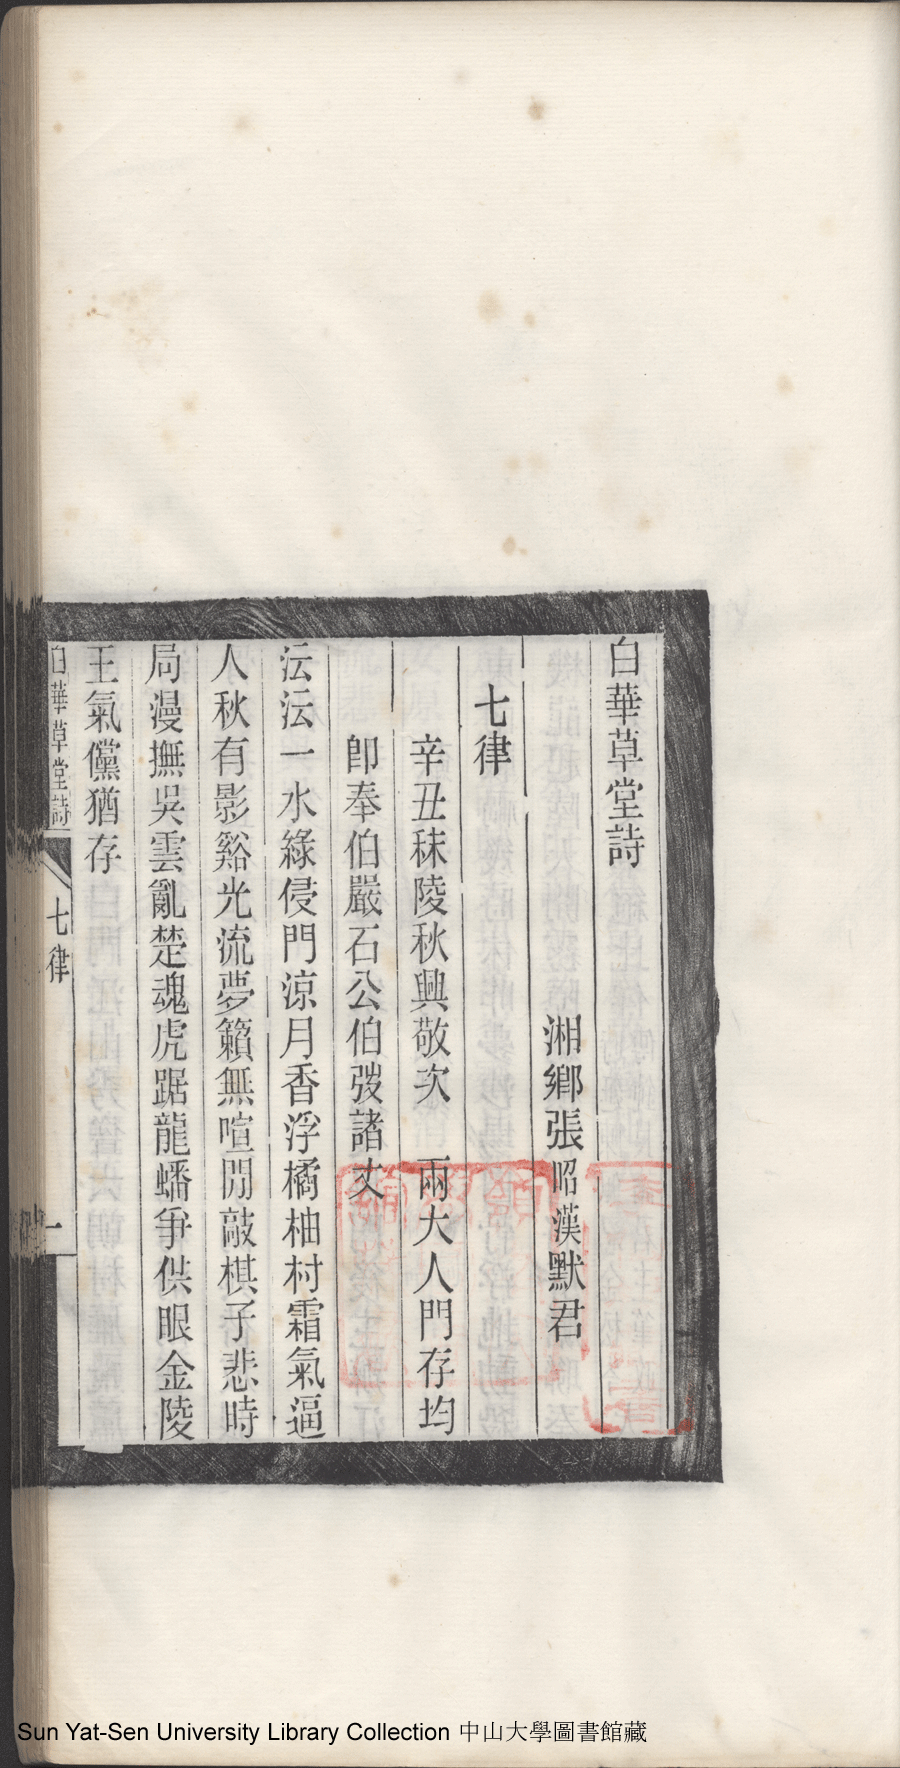 白華草堂詩
湘鄉張昭漢默君
七律
辛丑秣陵秋興敬次 兩大人門存均
卽奉伯嚴石公伯弢諸丈
沄沄一水綠侵門涼月香浮橘柚村霜氣逼
人秋有影谿光流夢籟無喧閒敲棋子悲時
局漫撫吳雲亂楚魂虎踞龍蟠爭供眼金陵
王氣儻猶存
白華草堂詩
七律
一
Sun Yat-Sen University Library Collection 中山大學圖書館藏